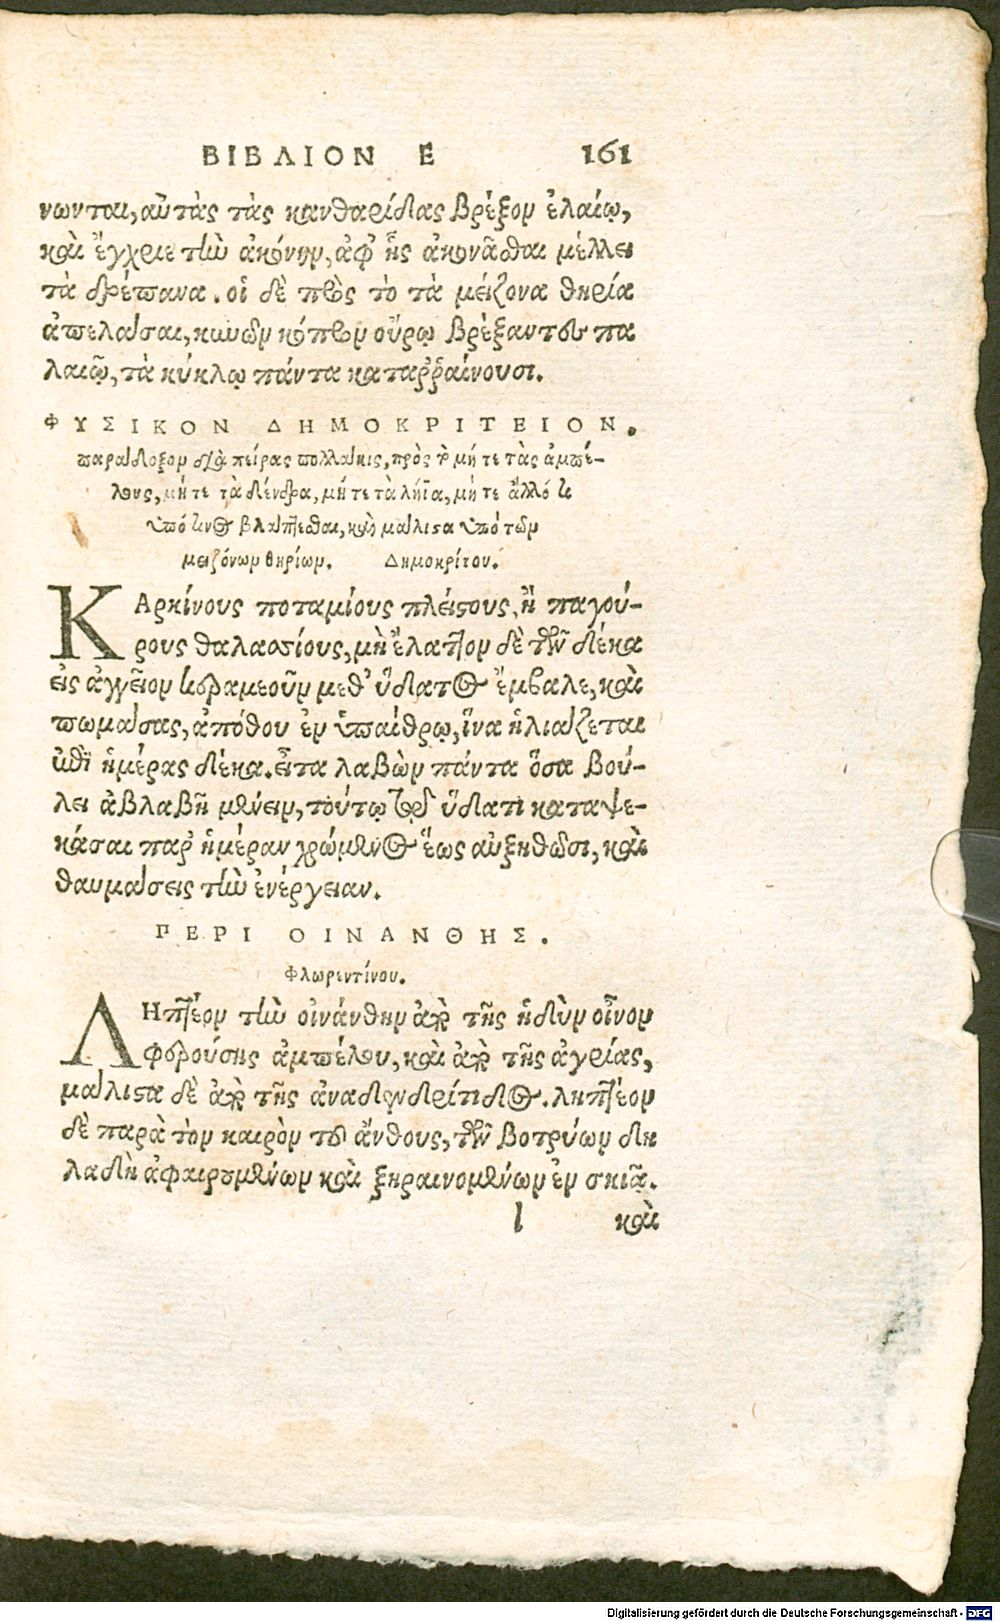 ΒΙΒΛΙΟΝ Ε 161
νωνται, αὐτὰς τὰς κανθαρίδας βρέξον ἐλαίῳ,
καὶ ἔγχριε τὴν ἀκόνην, ἀφ' ἧς ἀκονᾶσθαι μέλλει
τὰ δρέπανα. οἱ δὲ πρὸς τὸ τὰ μείζονα θηρία
ἀπελάσαι, κυνῶν κόπρον οὔρῳ βρέξαντες πα
λαιῷ, τὰ κύκλῳ πάντα καταῤῥαίνουσι.
ΦΥΣΙΚΟΝ ΔΗΜΟΚΡΙΤΕΙΟΝ.
παράδοξον διὰ πείρας πολλάκις, πρὸς τὸ μήτε τὰς ἀμπέ-
λους, μήτε τὰ δένδρα, μήτε τὰ λήϊα, μήτε ἄλλό τι
ὑπό τινος βλάπτεσθαι, καὶ μάλιστα ὑπὸ τῶν
μειζόνων θηρίων. Δημοκρίτου.
ΚΑρκίνους ποταμίους πλείστους, ἢ παγού-
ρους θαλασσίους, μὴ ἔλαττον δὲ τῶν δέκα
εἰς ἀγγεῖον κεραμεοῦν μεθ' ὕδατος ἔμβαλε, καὶ
πωμάσας, ἀπόθου ἐν ὑπαίθρῳ, ἵνα ἡλιάζεται
ἐπὶ ἡμέρας δέκα. εἶτα λαβὼν πάντα ὅσα βού-
λει ἀβλαβῆ μένειν, τούτῳ τῷ ὕδατι καταψε-
κάσαι παρ' ἡμέραν χρώμενος ἕως αὐξηθῶσι, καὶ
θαυμάσεις τὴν ἐνέργειαν.
ΠΕΡΙ ΟΙΝΑΝΘΗΣ.
Φλωρεντίνου.
ΛΗπτέον τὴν οἰνάνθην ἀπὸ τῆς ἡδὺν οἶνον
φερούσης ἀμπέλου, καὶ ἀπὸ τῆς ἀγρίας,
μάλιστα δὲ ἀπὸ τῆς ἀναδενδρίτιδος. ληπτέον
δὲ παρὰ τὸν καιρὸν τοῦ ἄνθους, τῶν βοτρύων δη
λαδὴ ἀφαιρουμένων καὶ ξηραινομένων ἐν σκιᾷ.
l καὶ
Digitalisierung gefördert durch die Deutsche Forschungsgemeinschaft - DFG